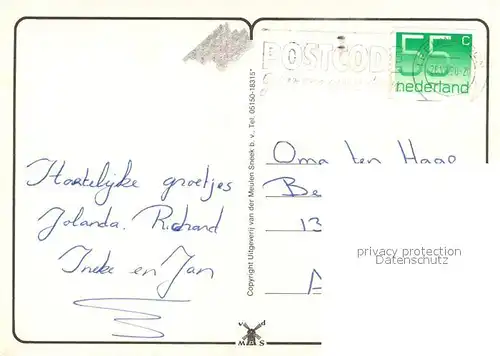 Hartelijke groetjes
Jolanda. Richard
Ineke en Jan
Copyright Uitgeverij van der Meulen Sneek b. v., Tel. 05150-18315*
POSTCODE
55 c
nederland
Oma ten Haao
Be
13
A
privacy protection
Datenschutz
v d
M S